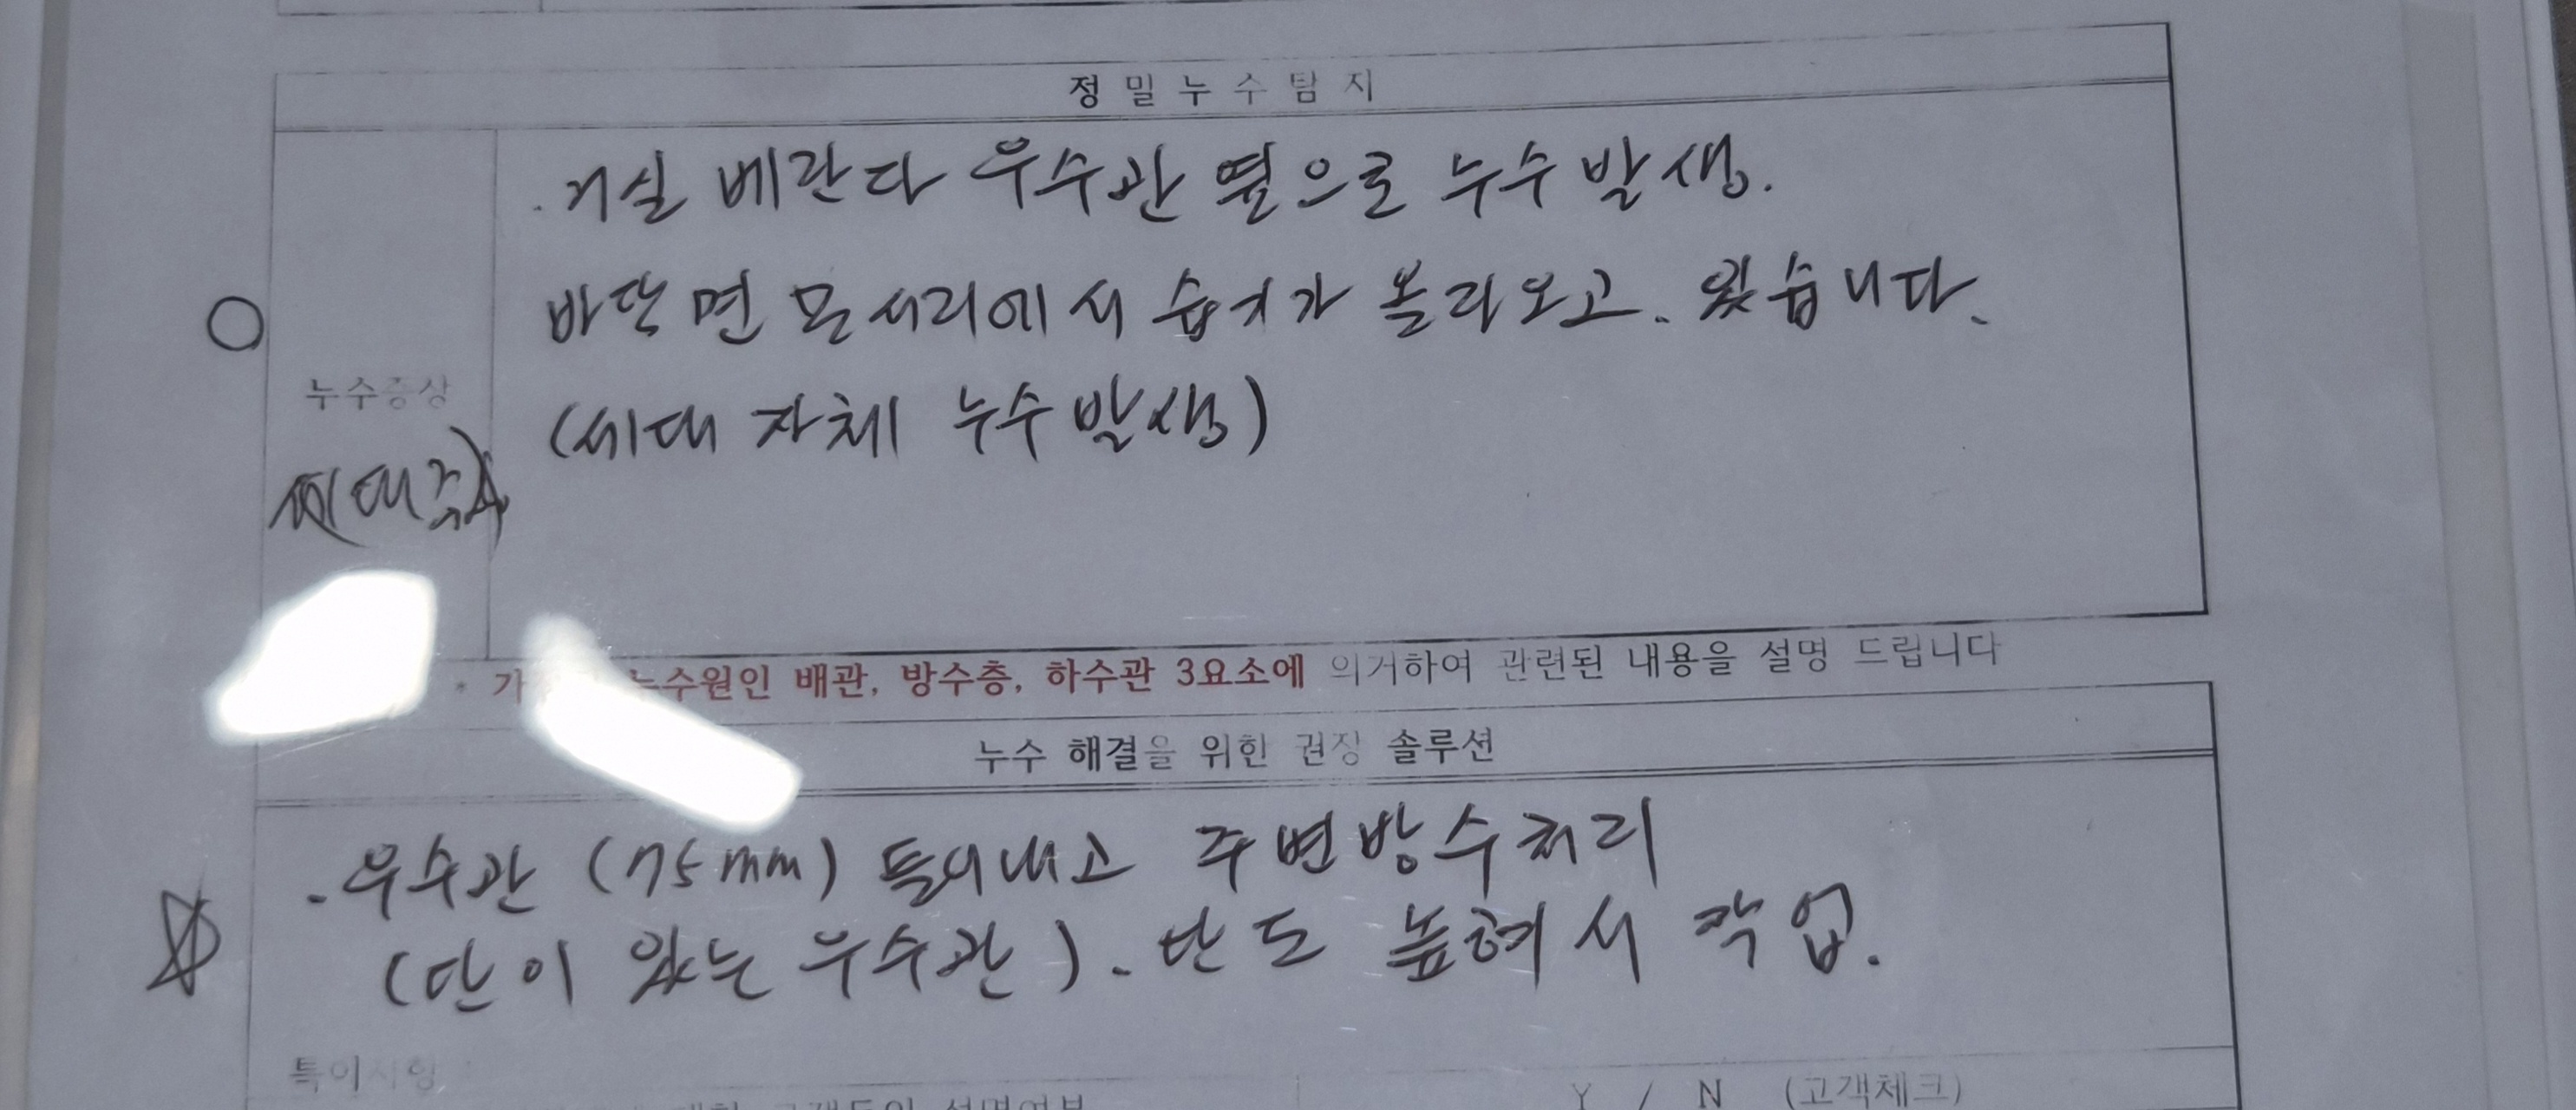 정밀누수탐지
. 거실 베란다 우수관 옆으로 누수발생.
바닥면 모서리에서 습기가 올라오고. 있습니다.
누수증상
(세대 자체 누수발생)
(세대주)
* 누수원인 배관, 방수층, 하수관 3요소에 의거하여 관련된 내용을 설명 드립니다
누수 해결을 위한 권장 솔루션
. 우수관 (75mm) 들어내고 주변방수처리
(단이 있는 우수관). 단도 높혀서 작업.
특이사항
Y / N (고객체크)